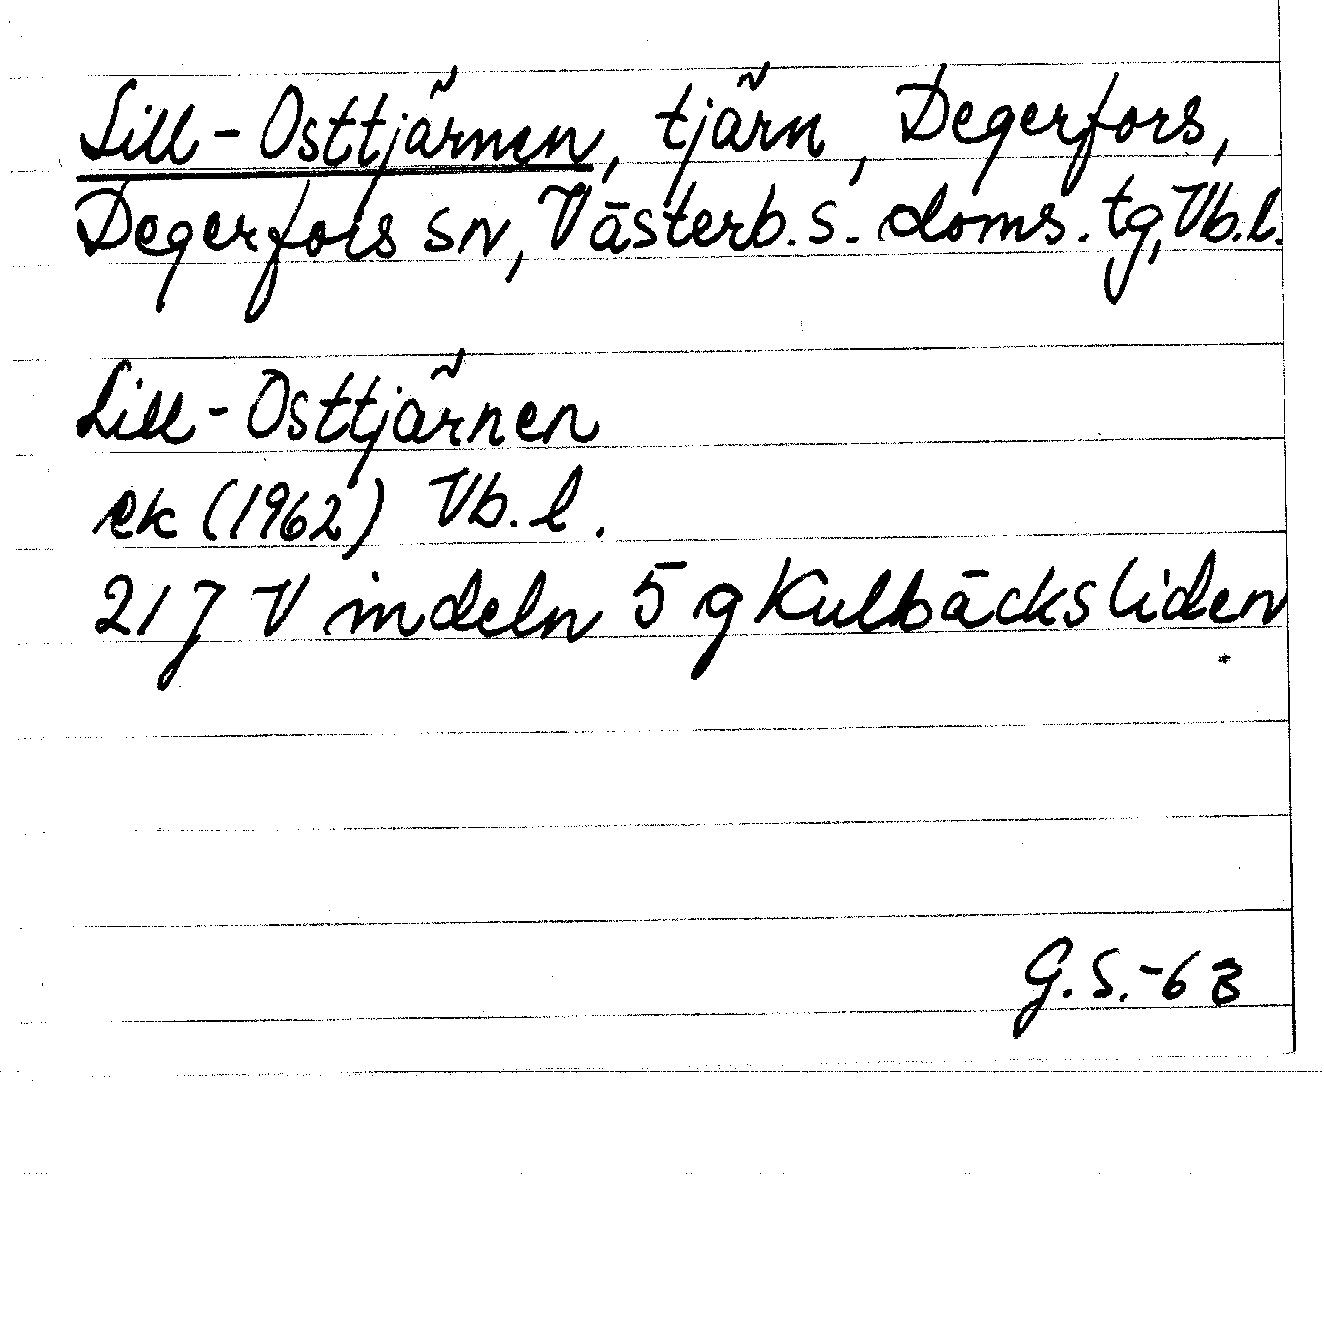 Lill-Osttjärnen, tjärn, Degerfors,
Degerfors sn, Västerb. s. doms. tg, Vb. l.
Lill-Osttjärnen
ek (1962) Vb. l.
217 Vindeln 5 g Kulbäcksliden
G. S. -63